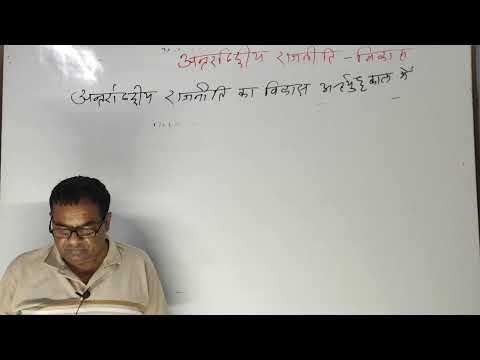 अन्तर्राष्ट्रीय राजनीति - विकास
अन्तर्राष्ट्रीय राजनीति का विकास अन्तर्युद्ध काल में